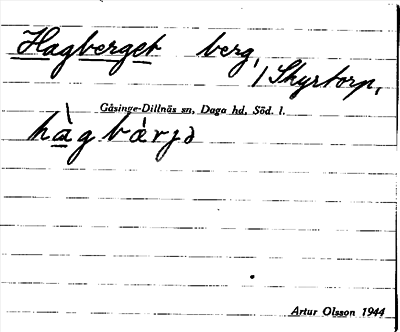 Hagberget berg,
/ Skyrtorp,
Gåsinge-Dillnäs sn, Daga hd, Söd. l.
hàgbàrjə
Artur Olsson 1944